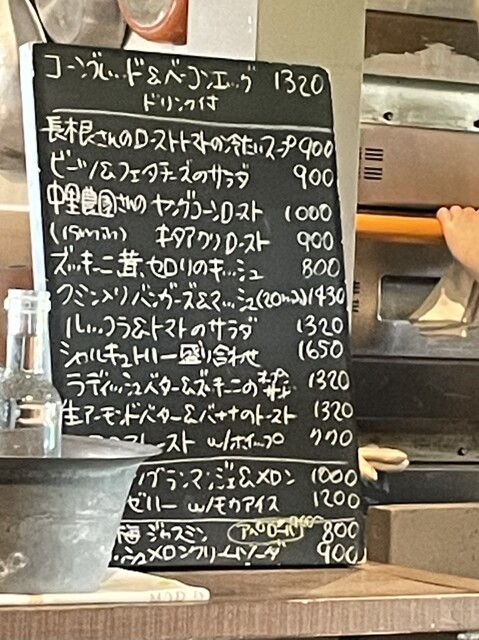 コーンブレッド&ベーコンエッグ 1320
ドリンク付
長根さんのローストトマトの冷たいスープ 900
ビーツ&フェタチーズのサラダ 900
中里農園さんの ヤングコーンロースト 1000
(15min) キタアカリロースト 900
ズッキーニ茸、セロリのキッシュ 800
クミン入りバンガーズ&マッシュ(20min) 1430
ルッコラ&トマトのサラダ 1320
シャルキュトリー盛り合わせ 1650
ラディッシュバター&ズッキーニの 1320
生アーモンドバター&バナナのトースト 1320
トースト w/ホイップ 770
ブランマンジェ&メロン 1000
ゼリー w/モカアイス 1200
梅 ジャスミン 800
メロンクリームソーダ 900